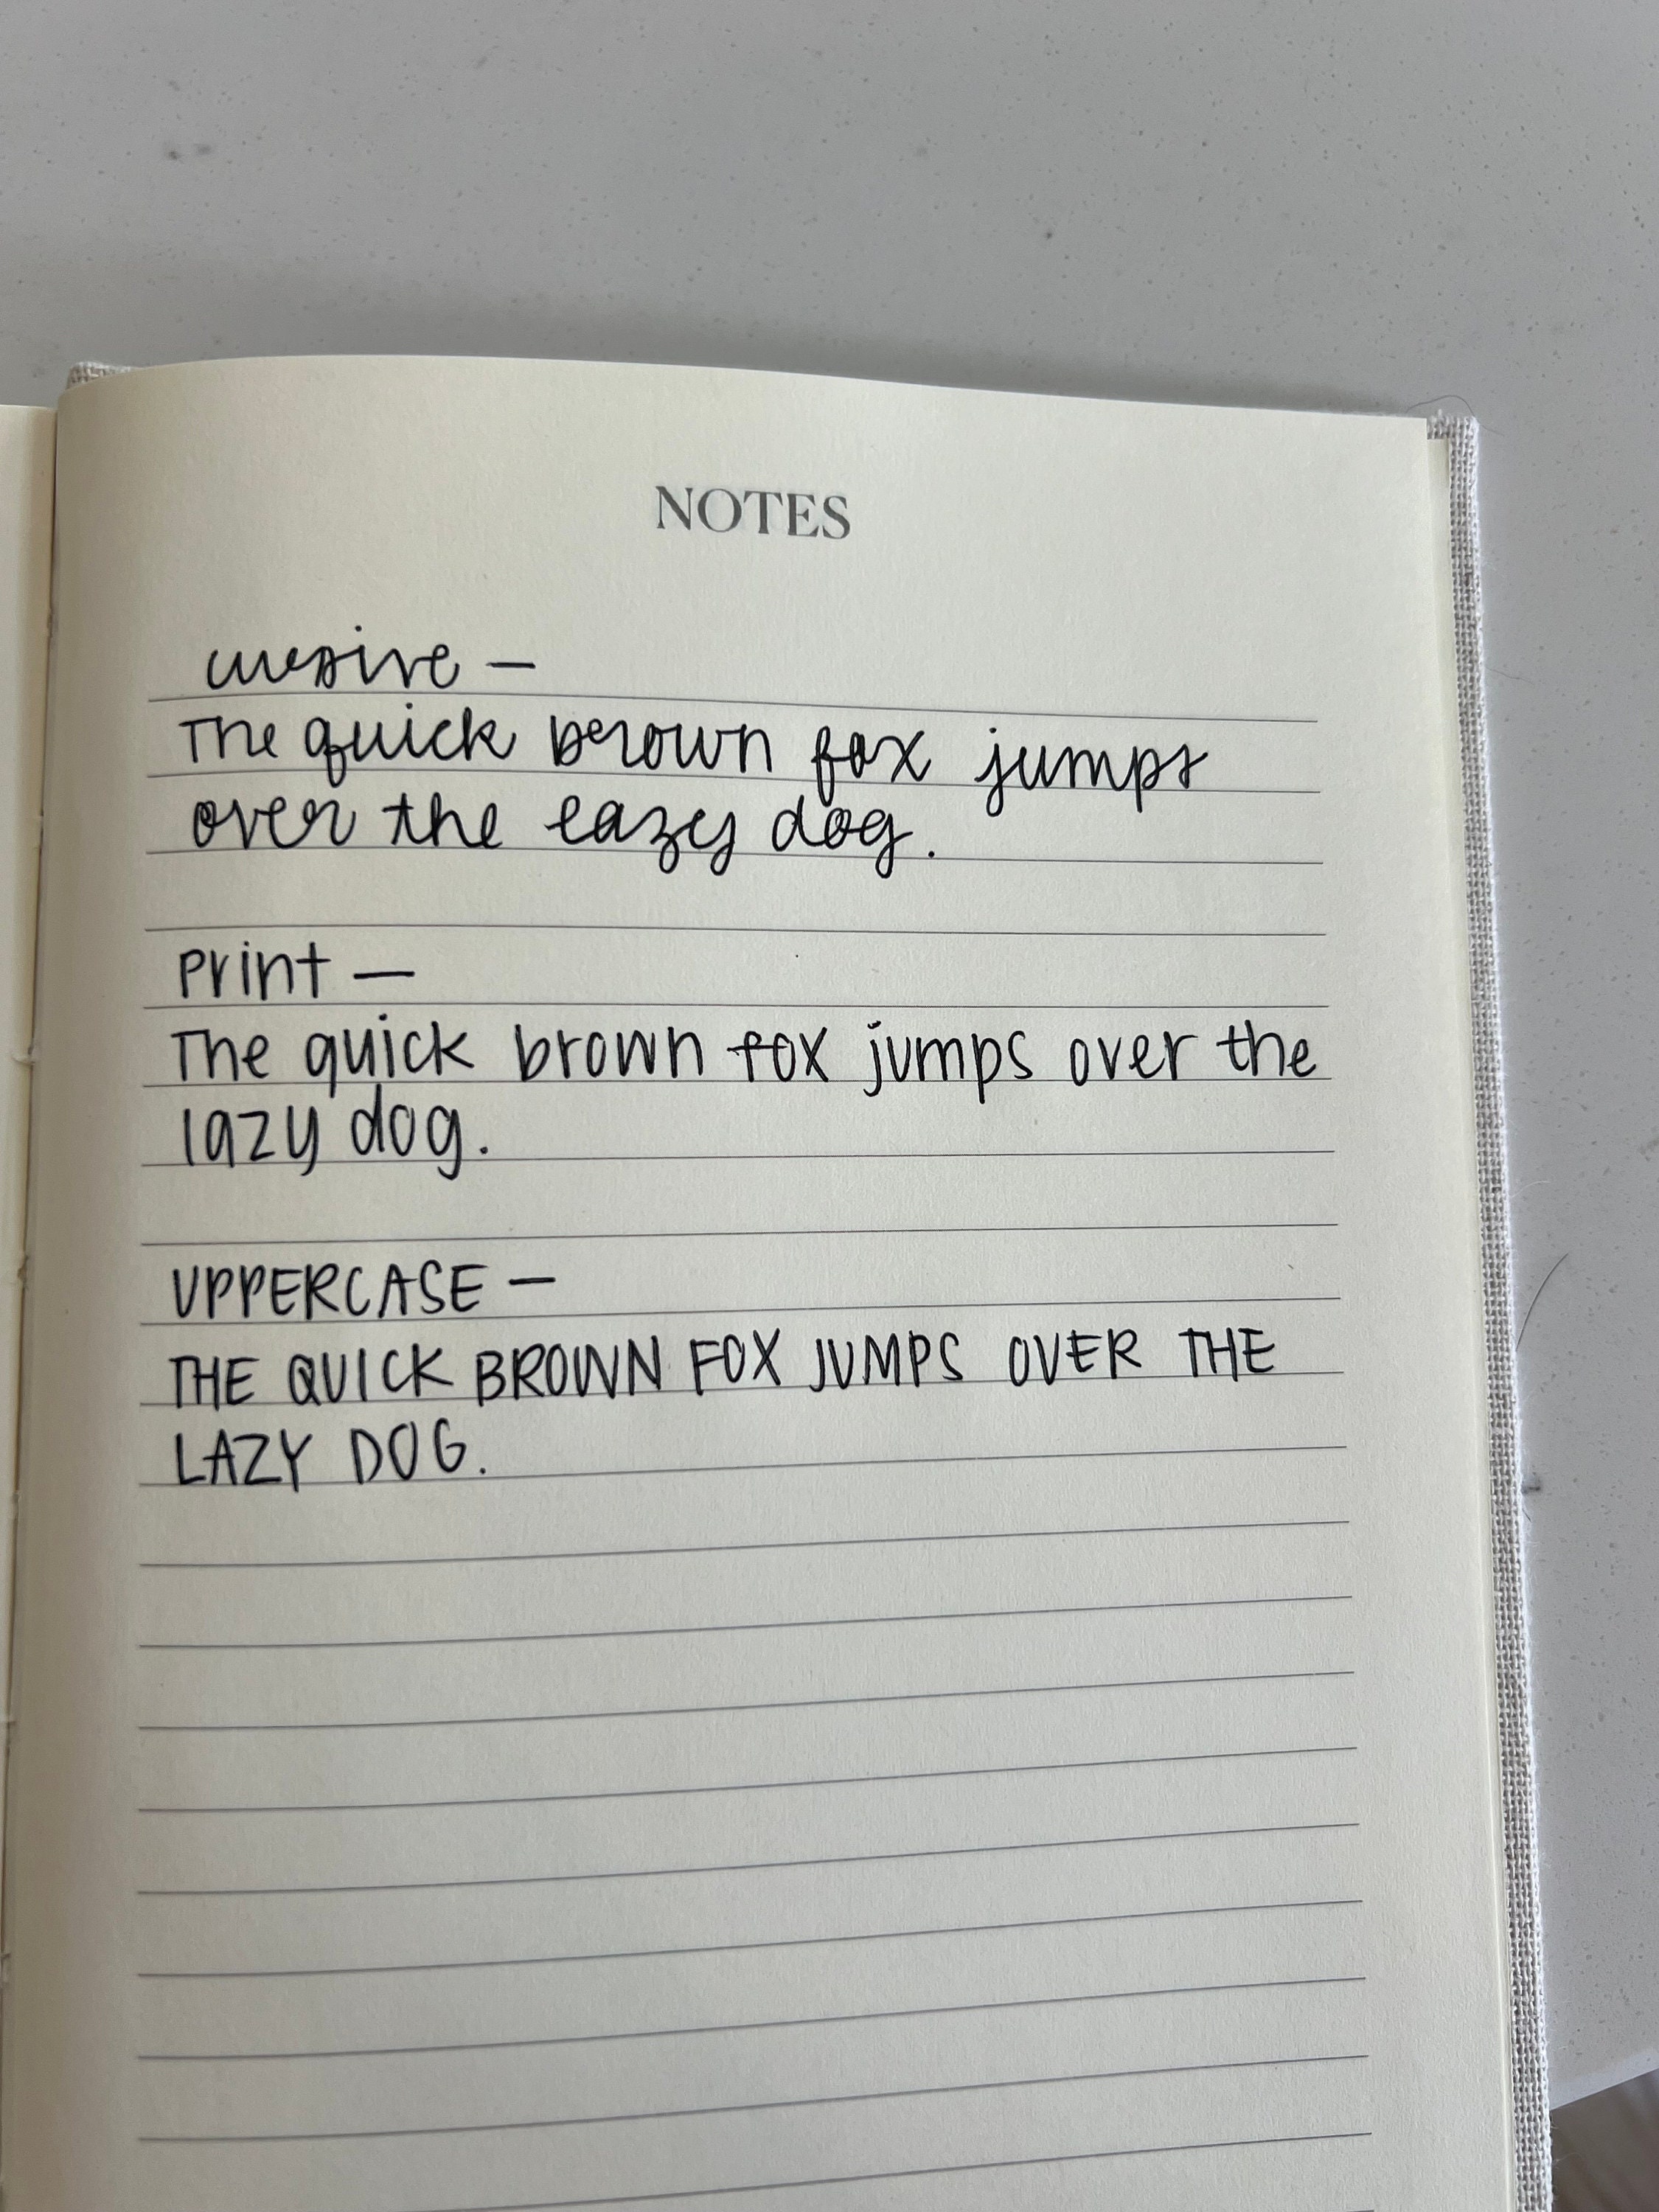 NOTES
cursive —
The quick brown fox jumps
over the lazy dog.
Print —
The quick brown fox jumps over the
lazy dog.
UPPERCASE —
THE QUICK BROWN FOX JUMPS OVER THE
LAZY DOG.